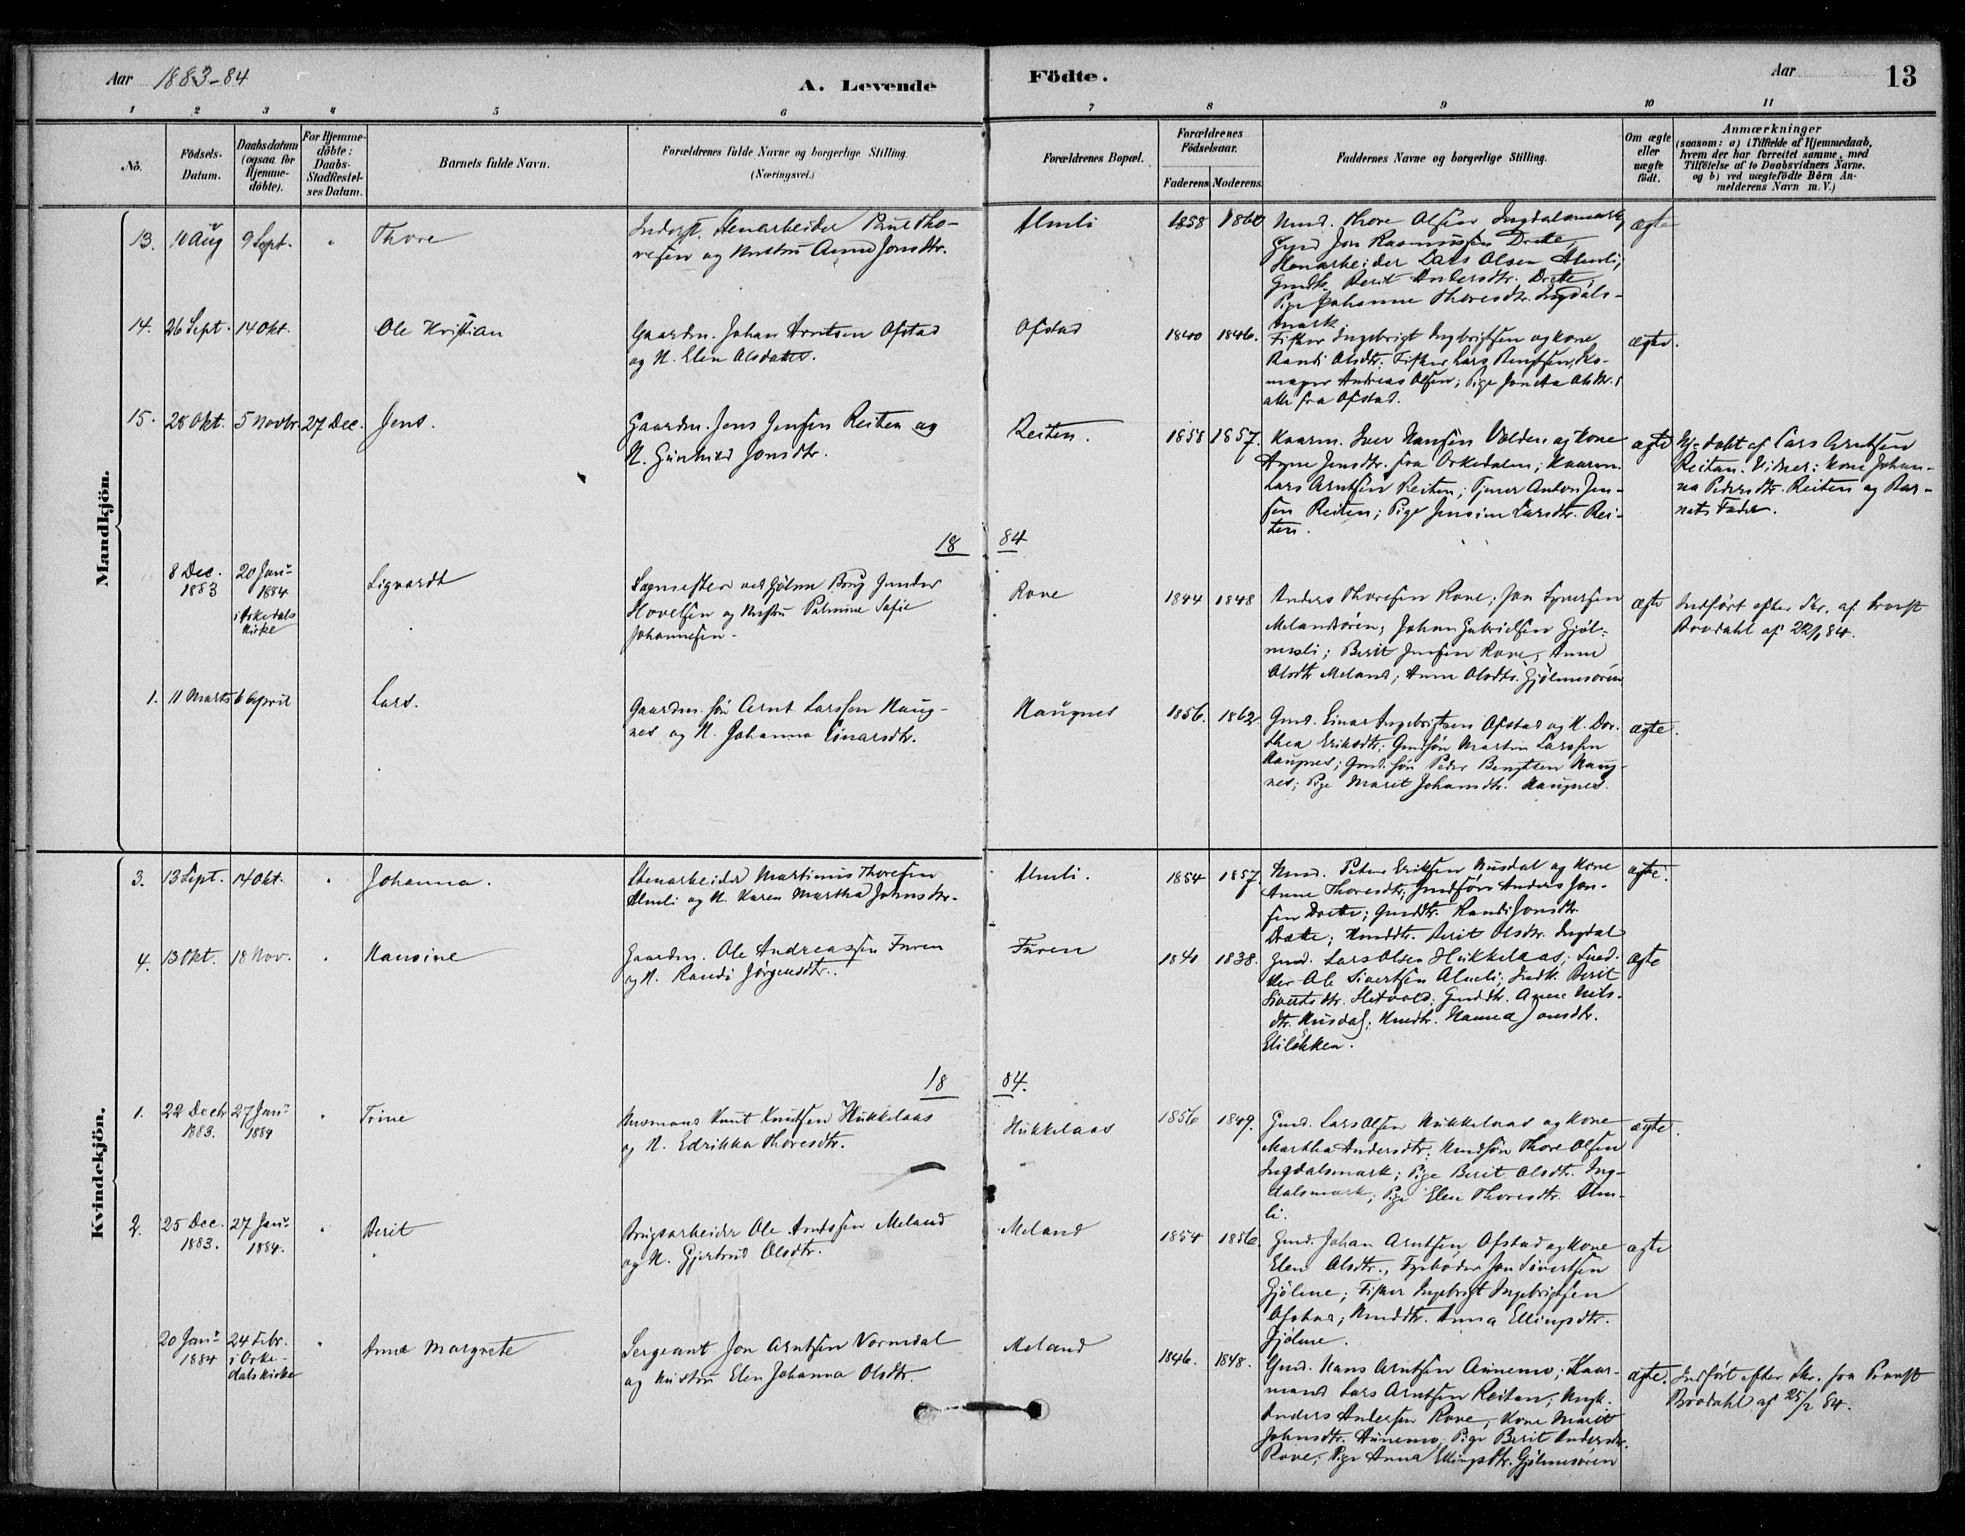 Aar 1883-84
A. Levende
Födte.
Aar
13
1 2 3 4 5 6 7 8 9 10 11
No.
Födsels-
Datum.
Daabsdatum
(ogsaa for
Hjemme-
döbte).
For Hjemme-
döbte:
Daabs-
Stadfæstel-
ses Datum.
Barnets fulde Navn.
Forældrenes fulde Navne og borgerlige Stilling.
(Næringsvei.)
Forældrenes Bopæl.
Forældrenes
Födselsaar.
Faderens Moderens
Faddernes Navne og borgerlige Stilling.
Om ægte
eller
uægte
födt.
Anmærkninger
(saasom: a) i Tilfælde af Hjemmedaab,
hvem der har forrettet samme, med
Tilföielse af to Daabsvidners Navne.
og b) ved uægtefödte Börn An-
melderens Navn m.V.)
Mandkjön.
13. 10 Aug 9 Sept. Thore
Inderst. Stenarbeider Paul Tho-
resen og Hustru Anne Jonsdtr.
Almli 1858 1860
Kmd. Thore Olsen Ingdalsmark,
Gmd Jon Rasmussen Drette,
Stenarbeider Lars Olsen Almli,
Gmdk. Berit Andersdtr. Drette,
Pige Johanne Thoresdtr. Ingdals-
mark.
ægte
14. 26 Sept. 14 Okt. Ole Kristian
Gaardm. Johan Arntsen Ofstad
og H. Elen Olsdatter.
Ofstad 1840 1846.
Fisker Ingebrigt Ingebrigtsen og kone
Randi Olsdtr. Fisker Lars Bentsen, Sko-
mager Andreas Olsen; Pige Olsdtr.;
alle fra Ofstad.
ægte.
15. 28 Okt. 5 Novbr. 27 Dec. Jens.
Gaardm. Jens Jensen Reiten og
H. Gunhild Jonsdtr.
Reiten. 1858 1857
Kaarm. Iver Hansen Volden og Kone
Jonsdtr. fra Orkedalen; Kaarm.
Lars Arntsen Reiten; Tjener Anton Jen-
sen Reiten; Pige Jensine Larsdtr. Rei-
ten.
ægte
Hj-døbt af Lars Arntsen
Reitan. Vidner: Kone Johan-
na Pedersdtr. Reiten og Bar-
nets Fader.
18 84
8 Dec.
1883
20 Janr
1884
i Orkedals
Kirke
Sigvardt
Sagmester ved Gjølme Brug Gunder
Hovelsen og Hustru Palmine Sofie
Johannesen.
Rove 1844 1848
Anders Thoresen Rove; Jon Syversen
Melandsören; Johan Gabrielsen Gjöl-
mesli; Berit Jensen Rove, Anne
Olsdtr Meland; Anne Olsdtr. Gjölmesören
ægte
Indført efter Skr. af Provst
Brodahl af 22/1 84.
1. 11 Marts 6 April Lars.
Gaardm. søn Arnt Larssen Haug-
nes og H. Johanna Einarsdtr.
Haugnes 1856. 1862.
Gmd. Einar Ingebrigtsen Ofstad og H. Dor-
thea Eriksdtr; Gmdsön Martin Larssen
Haugnes; Gmd. sön Peder Bengtsen Haug-
nes; Pige Marit Johansdtr. Haugnes.
ægte.
Kvindekjön.
3. 13 Sept. 14 Okt. Johanna.
Stenarbeider Martinus Thoresen
Almli og H. Karen Martha Johnsdtr.
Almli. 1854 1857
Kmd. Peter Eriksen Husdal og Kone
Anne Thoresdtr; Gmdsön Anders Jon-
sen Drette; Gmddtr. Randi Jonsdtr.
Drette; Kmddtr. Berit Olsdtr. Ingdal
ægte.
4. 13 Okt. 18 Nov. Hansine
Gaardm. Ole Andreassen Furen
og H. Randi Jørgensdtr.
Furen 1841 1838.
Gmd. Lars Olsen Hukkelaas; Sned-
ker Ole Sivertsen Almli; Indk. Berit
Sivertsdtr. Gmddtr. Anne Nils-
dtr. Husdal; Kmdtr. Hanna Jonsdtr.
ægte
18 84.
1. 22 Decbr
1883.
27 Janr
1884
Trine
Husmand Knut Knutsen Hukkelaas
og H. Edrikka Thoresdtr.
Hukkelaas 1856 1849.
Gmd. Lars Olsen Hukkelaas og kone
Martha Andersdtr. Kmdsön Thore Olsen
Ingdalsmark; Pige Berit Olsdtr. Ing-
dalsmark; Pige Elen Thoresdtr. Alm-
li.
ægte.
2. 25 Dec.
1883.
27 Janr
1884.
Berit
Brugsarbeider Ole Arntssen Meland
og H. Gjertrud Olsdtr.
Meland 1854 1856.
Gmd. Johan Arntsen Ofstad og Kone
Elen Olsdtr., Jon Sivertsen
Gjölme; Fisker Ingebrigt Ingebrigtsen
Ofstad; Kmddtr. Anna Ellingsdtr.
Gjölme.
ægte
20 Janr
1884
24 Febr.
i Orke-
dals kirke
Anne Margrete
Sergeant Jon Arntsen Vormdal
og Hustru Elen Johanna Olsdtr.
Meland 1846. 1848.
Gmd. Hans Arntsen Aunemo; Kaar-
mand Lars Arntsen Reitan; Ungk.
Anders Andersen Rove, Kone Marit
Johnsdtr. Aunemo. Pige Berit Andersdtr.
Rove; Pige Anna Ellingsdtr. Gjölmesören
ægte.
Indført efter Skr. fra Provst
Brodahl af 25/2 84.